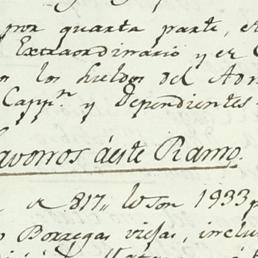 por quarta parte, e
Extraordinario y el
los sueldos del Adm
Cappn y Dependientes
avorros deste Ramo.
a 817,, los on 1933 p
Borregas viejas, inclu